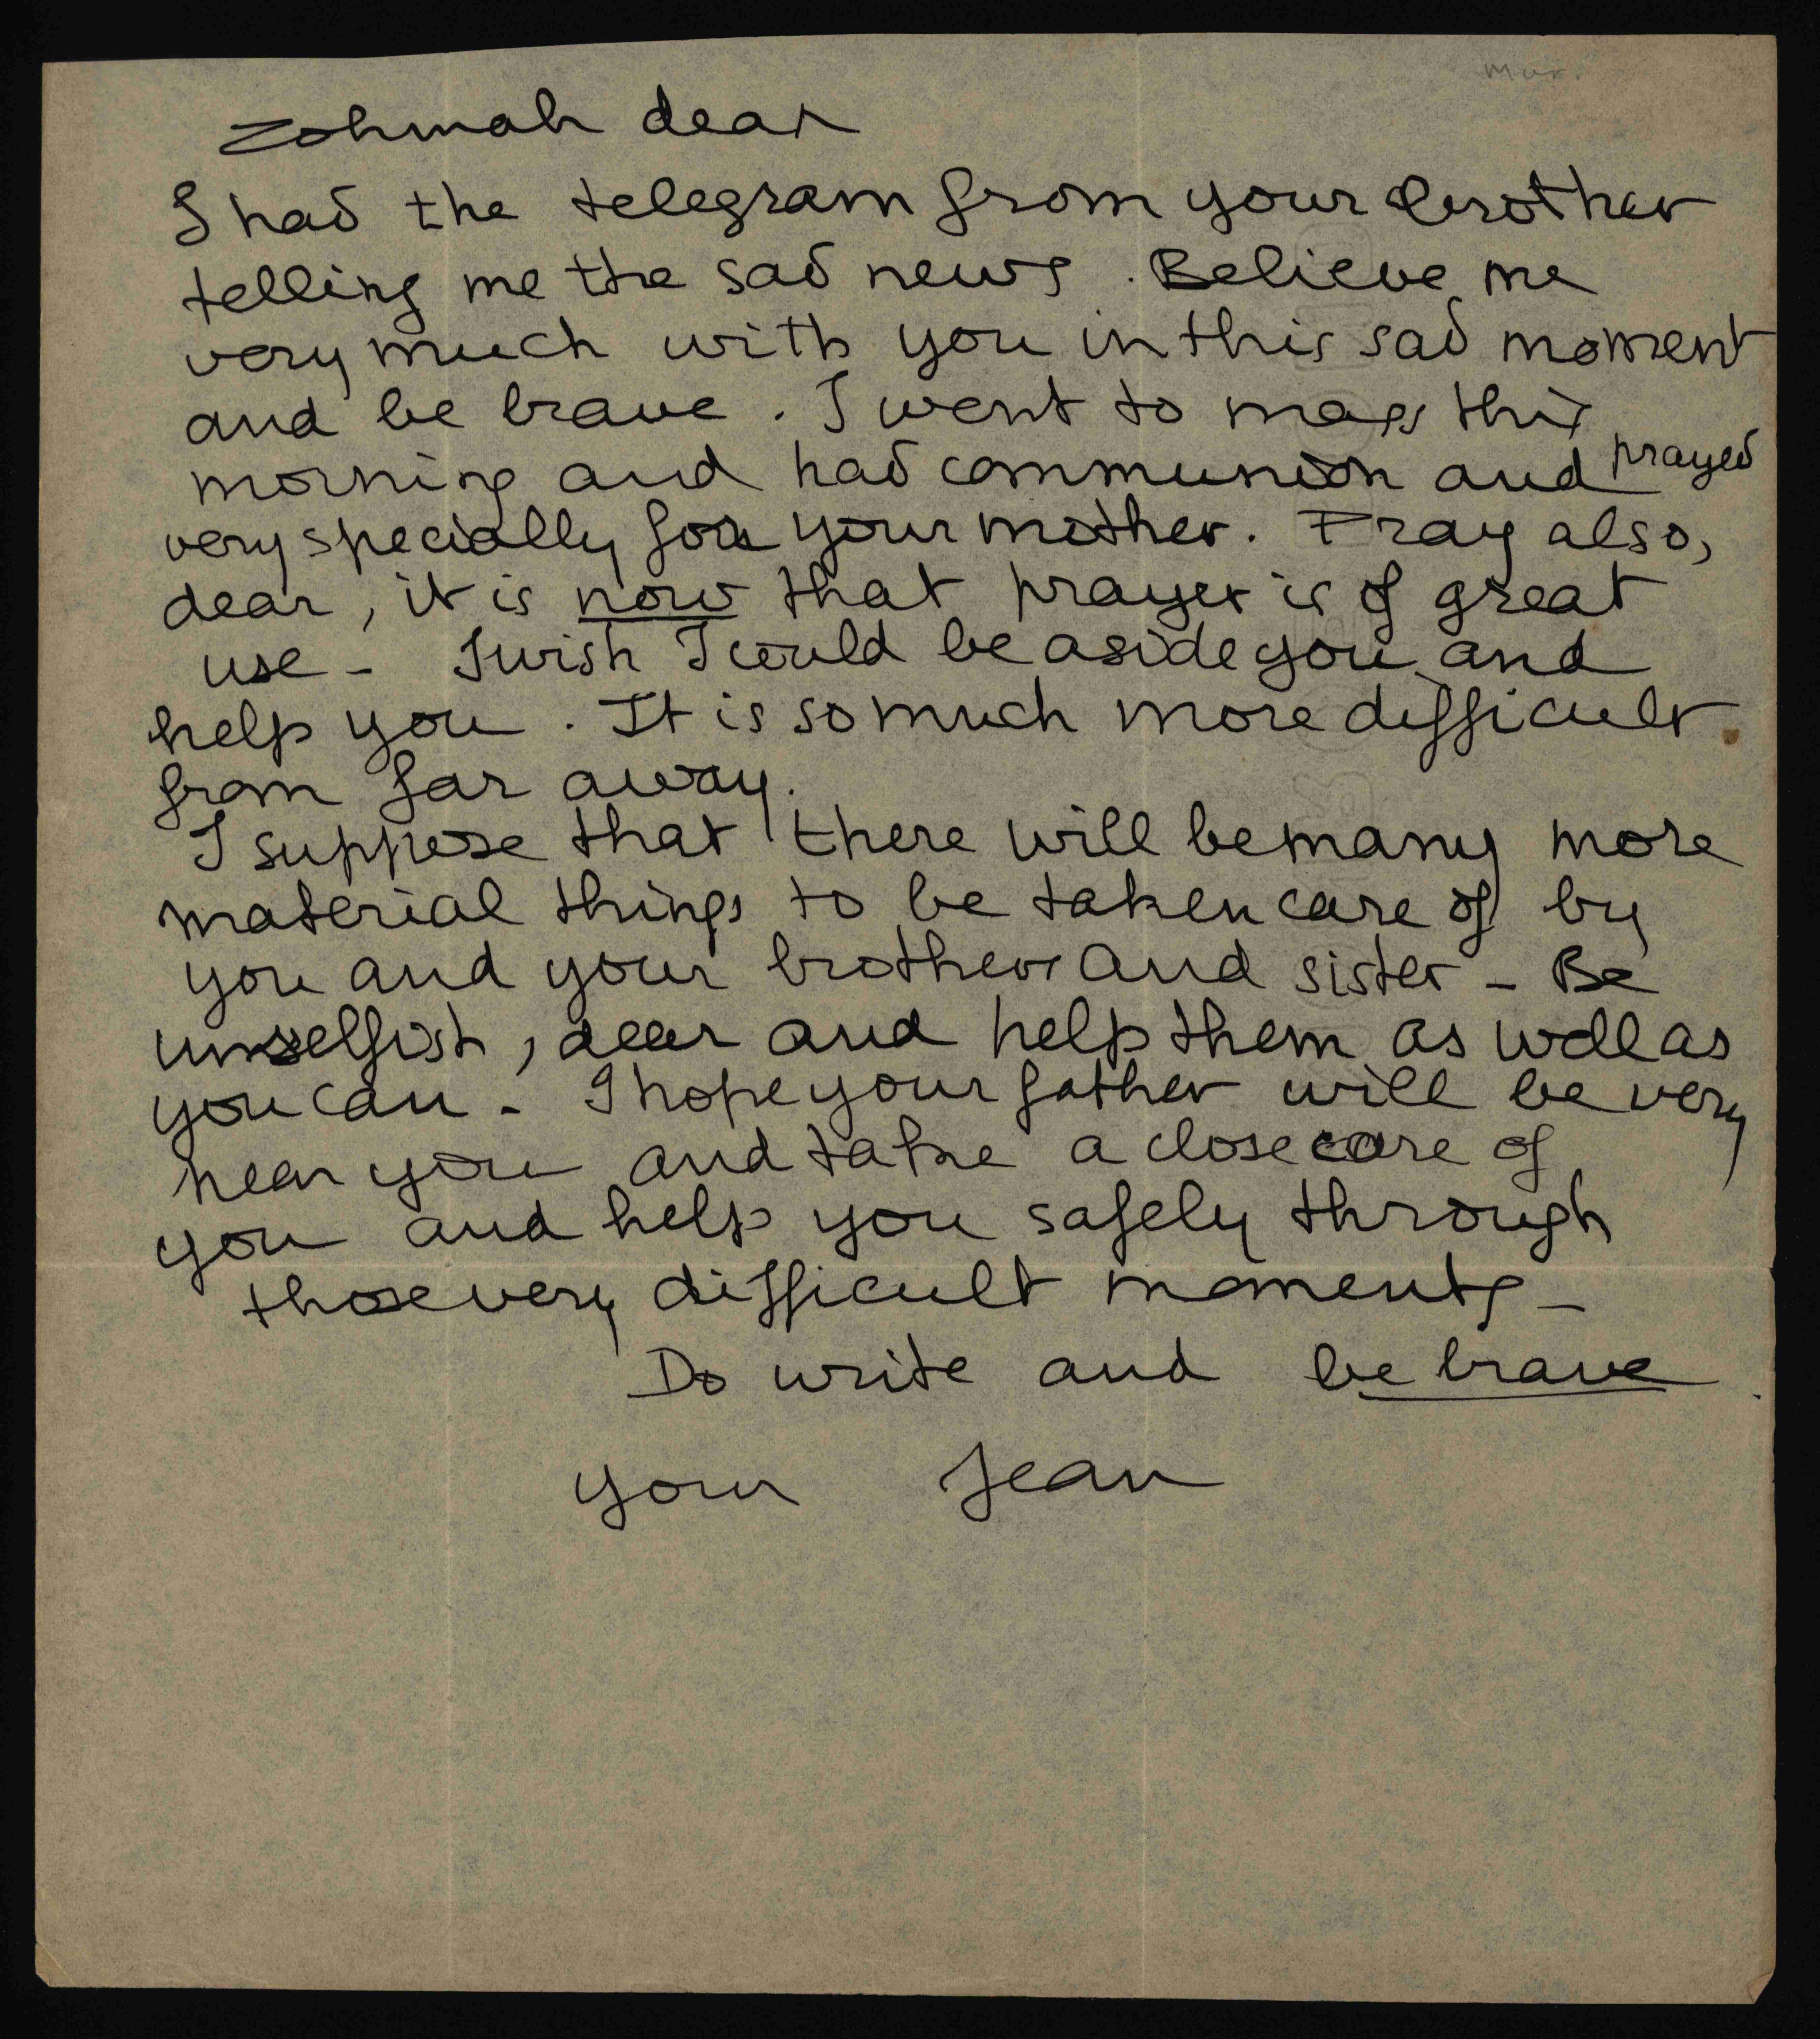 Mar.
Zohmah dear
I had the telegram from your brother
telling me the sad news. Believe me
very much with you in this sad moment
and be brave. I went to mass this
morning and had communion and prayed
very specially for your mother. Pray also,
dear, it is now that prayer is of great
use - I wish I could be aside you and
help you. It is so much more difficult
from far away.
I suppose that there will be many more
material things to be taken care of by
you and your brother and sister - Be
unselfish, dear and help them as well as
you can - I hope your father will be very
near you and take a close care of
you and help you safely through
those very difficult moments -
Do write and be brave.
your Jean